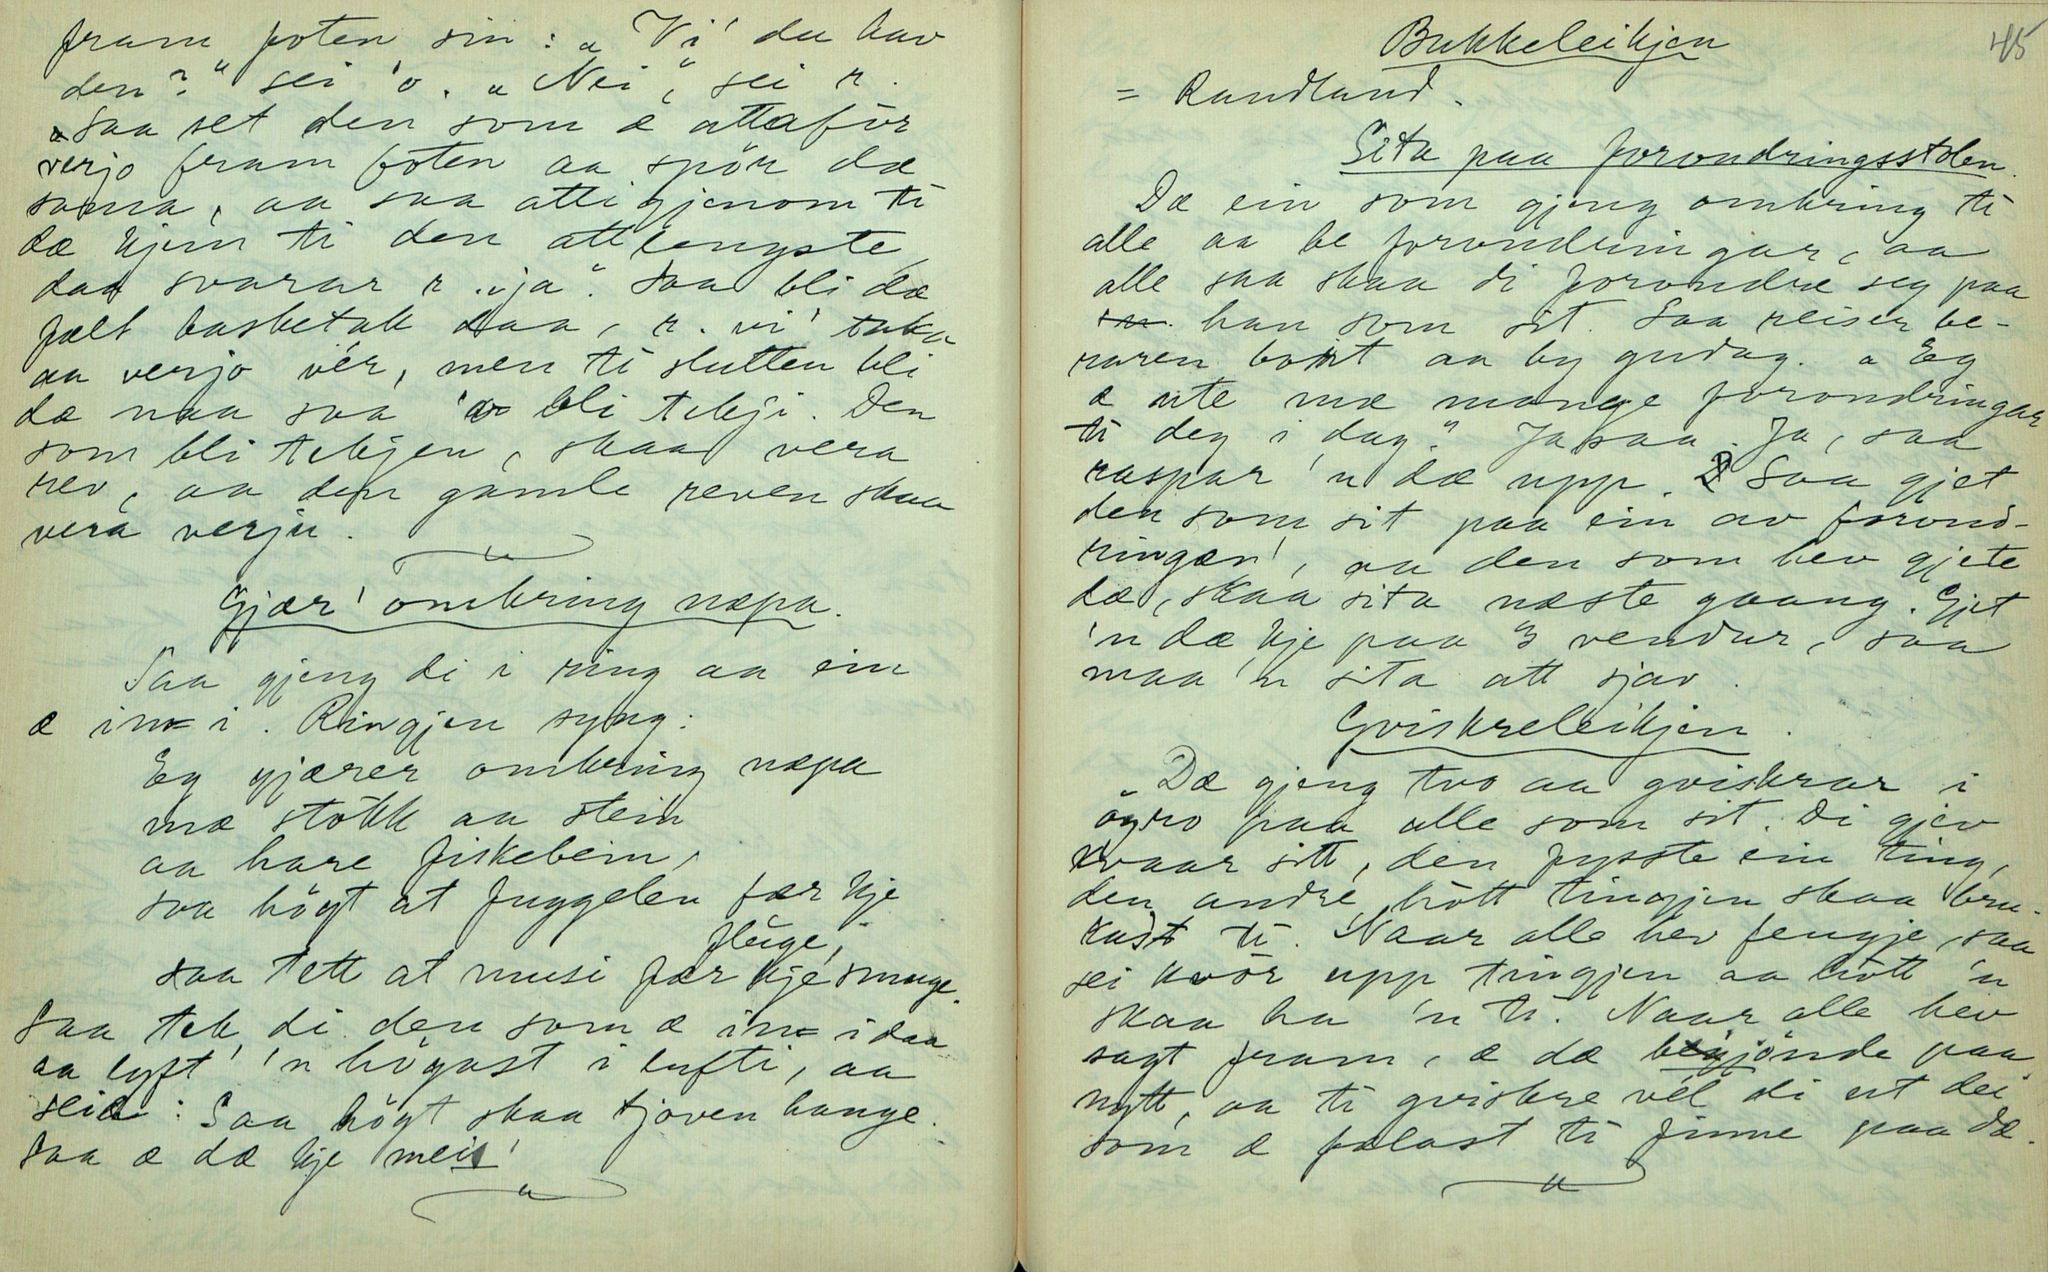 fram foten sin: „Vi' du hav
den?" sei 'o. „Nei," sei r.
Saa set den som æ attafor
verjo fram foten aa spör dæ
sama, aa saa atti gjenom ti
dæ kjem ti den attlengste,
daa svarar r „ja". Saa bli dæ
fælt basketak daa, r. vi' taka
aa verjo vér, men ti slutten bli
dæ naa saa 'o bli tekji. Den
som bli tekjen, skaa vera
rev, aa den gamle reven skaa
vera verju.
Gjær' ombring næpa.
Saa gjeng di i ring aa ein
æ inn i. Ringjen syng:
Eg gjærer ombring næpa
mæ stökk aa stein
aa hare fiskebein,
saa högt at fuggelen fær kje
fluge,
saa tett at musi fær kje smuge.
Saa tek di den som æ inn i daa
aa lyft' 'n högast i lufti, aa
seia: Saa högt skaa tjoven hange.
Saa æ dæ kje mei!
45
Bukkeleikjen
= Randland.
Sita paa forondringsstolen.
Dæ ein som gjeng ombring ti
alle aa be forondringar, aa
alle saa skaa di forondre seg paa
han som sit. Saa reiser be-
raren bort aa by gudag. „Eg
æ ute mæ mange forondringar
ti deg i dag." Jasaa. Ja, saa
raspar 'n dæ upp. Saa gjet
den som sit paa ein av forond-
ringan', aa den som hev gjete
dæ, skaa sita næste gaang. Gjet
'n dæ kje paa 3 vendur, saa
maa 'n sita att sjav.
Gviskreleikjen.
Dæ gjeng tvo aa gviskrar i
öyro paa alle som sit. Di gjev
kvaar sitt, den fysste ein ting,
den andre hott tingjen skaa bru-
kast ti. Naar alle hev fengje, saa
sei kvör upp tingjen aa hott 'n
skaa ha 'n ti. Naar alle hev
sagt fram, æ dæ begjönde paa
nytt, aa ti gviskre vél di ut dei
som æ falast ti finne paa dæ.